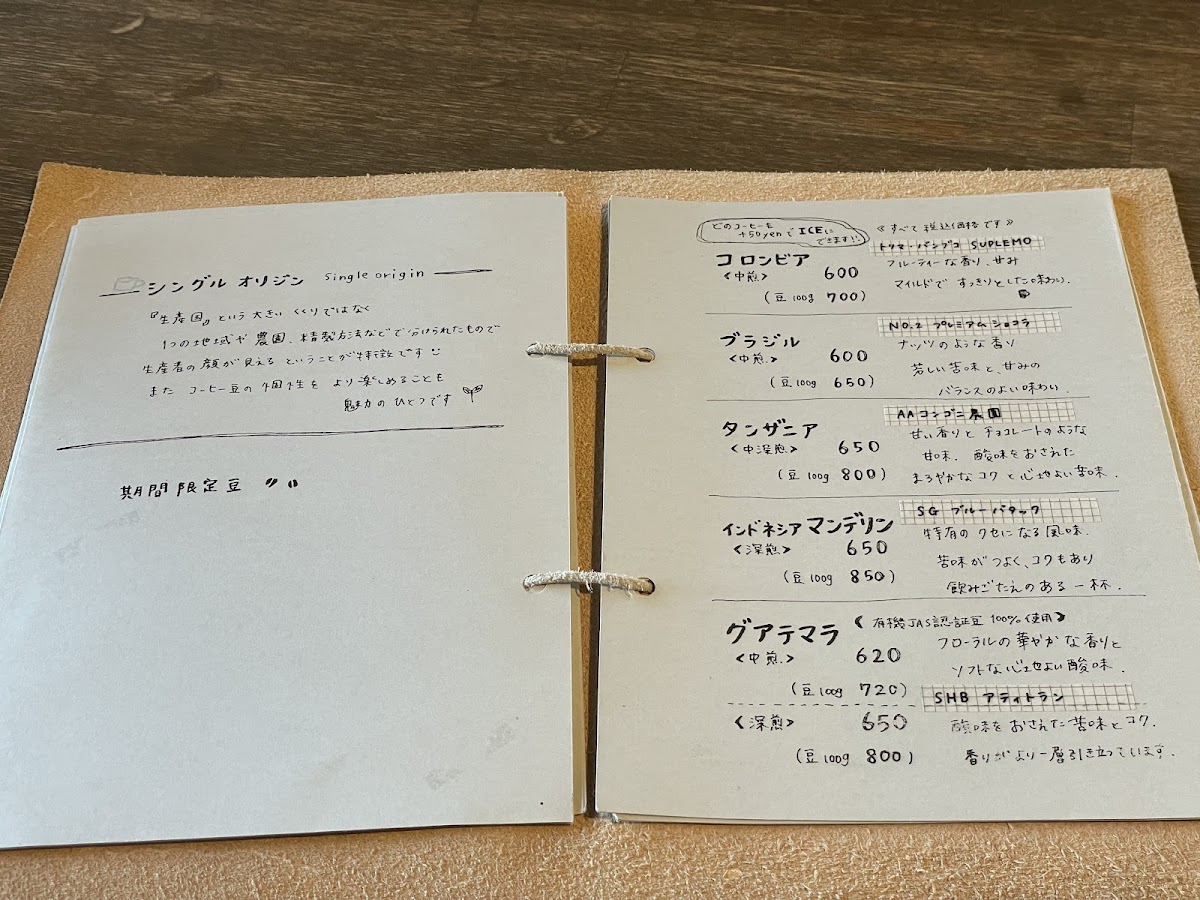 シングル オリジン Single origin
『生産国』という大きいくくりではなく
1つの地域や農園、精製方法などで分けられたもので
生産者の顔が見えるということが特徴です
また コーヒー豆の個性を より楽しめることも
魅力のひとつです
期間限定豆
どのコーヒーも
+50yenでICEに
できます!!
《すべて税込価格です》
コロンビア
トリマ・バンブコ SUPLEMO
<中煎> 600
フルーティーな香り、甘み
(豆100g 700)
マイルドで すっきりとした味わい.
ブラジル
NO.2 プレミアムショコラ
<中煎.> 600
ナッツのような香り
(豆100g 650)
苦しい苦味と、甘みの
バランスのよい味わい.
タンザニア
AAコンゴニ農園
<中深煎> 650
甘い香りと チョコレートのような
(豆100g 800)
甘味. 酸味をおさえた
まろやかなコクと心地よい苦味.
インドネシア マンデリン
SG ブルーバタック
<深煎> 650
特有の クセになる風味.
(豆100g 850)
苦味がつよく、コクもあり
飲みごたえのある一杯.
グアテマラ 《有機JAS認証豆 100%使用》
<中煎.> 620
フローラルの華やかな香りと
(豆100g 720)
ソフトな心地よい酸味.
SHB アティトラン
<深煎> 650
酸味をおさえた苦味とコク.
(豆100g 800)
香りがより一層引き立っています.